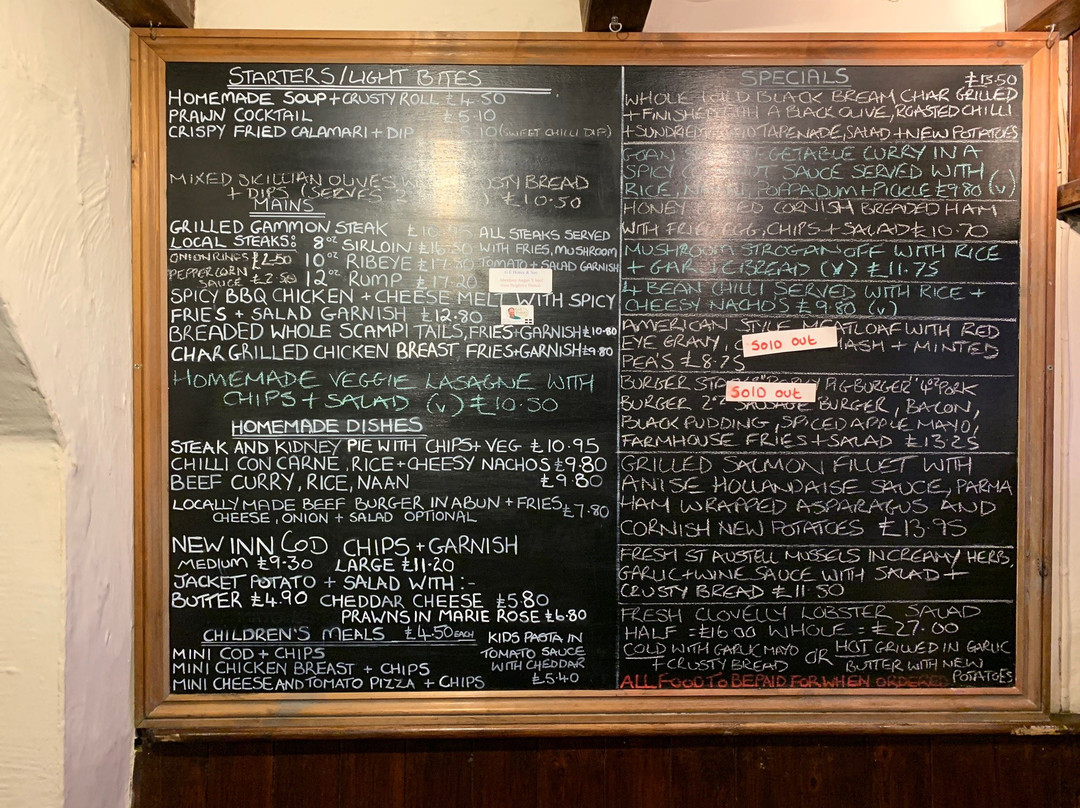 STARTERS/LIGHT BITES
HOMEMADE SOUP + CRUSTY ROLL £4.50
PRAWN COCKTAIL £5.10
CRISPY FRIED CALAMARI + DIP 5.10 (SWEET CHILLI DIP)
MIXED SICILLIAN OLIVES BREAD
+ DIPS (SERVES 2 £10.50
MAINS
GRILLED GAMMON STEAK ALL STEAKS SERVED
LOCAL STEAKS: 8oz SIRLOIN WITH FRIES, MUSHROOM
ONION RINGS £2.50 10oz RIBEYE TOMATO + SALAD GARNISH
PEPPERCORN SAUCE 12oz RUMP £17.20
SPICY BBQ CHICKEN + CHEESE MELT WITH SPICY
FRIE'S + SALAD GARNISH £12.80
BREADED WHOLE SCAMPI TAILS, FRIES+GARNISH £10.80
CHAR GRILLED CHICKEN BREAST FRIES+GARNISH £9.80
HOMEMADE VEGGIE LASAGNE WITH
CHIPS + SALAD (V) £10.50
HOMEMADE DISHES
STEAK AND KIDNEY PIE WITH CHIPS + VEG £10.95
CHILLI CON CARNE, RICE + CHEESY NACHOS £9.80
BEEF CURRY, RICE, NAAN £9.80
LOCALLY MADE BEEF BURGER IN A BUN + FRIES £7.80
CHEESE, ONION + SALAD OPTIONAL
NEW INN COD CHIPS + GARNISH
MEDIUM £9.30 LARGE £11.20
JACKET POTATO + SALAD WITH :-
BUTTER £4.90 CHEDDAR CHEESE £5.80
PRAWNS IN MARIE ROSE £6.80
CHILDREN'S MEALS £4.50 EACH
MINI COD + CHIPS
MINI CHICKEN BREAST + CHIPS
MINI CHEESE AND TOMATO PIZZA + CHIPS
KIDS PASTA IN
TOMATO SAUCE
WITH CHEDDAR
£5.40
SPECIALS £13.50
WHOLE WILD BLACK BREAM CHAR GRILLED
+ FINISHED A BLACK OLIVE, ROASTED CHILLI
+ SUNDRIED TAPENADE, SALAD + NEW POTATOES
GOAN VEGETABLE CURRY IN A
SPICY SAUCE SERVED WITH
RICE, POPPADUM + PICKLE £9.80 (V)
HONEY CORNISH BREADED HAM
WITH FRIED EGG, CHIPS + SALAD £10.70
MUSHROOM STROGANOFF WITH RICE
+ GARLIC BREAD (V) £11.75
4 BEAN CHILLI SERVED WITH RICE +
CHEESY NACHO'S £9.80 (V)
AMERICAN STYLE MEATLOAF WITH RED
EYE GRAVY, SOLD OUT MASH + MINTED
PEA'S £8.75
BURGER SOLD OUT PIG BURGER" 4oz PORK
BURGER 2oz SAUSAGE BURGER, BACON,
BLACK PUDDING, SPICED APPLE MAYO,
FARMHOUSE FRIES + SALAD £13.25
GRILLED SALMON FILLET WITH
ANISE HOLLANDAISE SAUCE, PARMA
HAM WRAPPED ASPARAGUS AND
CORNISH NEW POTATOES £13.95
FRESH ST AUSTELL MUSSELS IN CREAMY HERB,
GARLIC + WINE SAUCE WITH SALAD +
CRUSTY BREAD £11.50
FRESH CLOVELLY LOBSTER SALAD
HALF = £16.00 WHOLE = £27.00
COLD WITH GARLIC MAYO OR HOT GRILLED IN GARLIC
+ CRUSTY BREAD BUTTER WITH NEW
POTATOES
ALL FOOD TO BE PAID FOR WHEN ORDERED